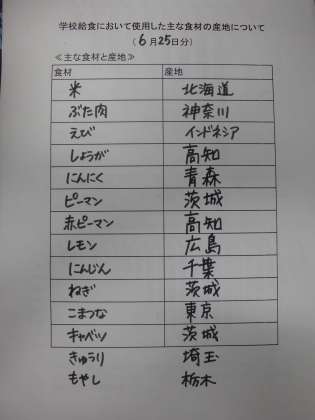 学校給食において使用した主な食材の産地について
(6月25日分)
≪主な食材と産地≫
食材 産地
米 北海道
ぶた肉 神奈川
えび インドネシア
しょうが 高知
にんにく 青森
ピーマン 茨城
赤ピーマン 高知
レモン 広島
にんじん 千葉
ねぎ 茨城
こまつな 東京
キャベツ 茨城
きゅうり 埼玉
もやし 栃木